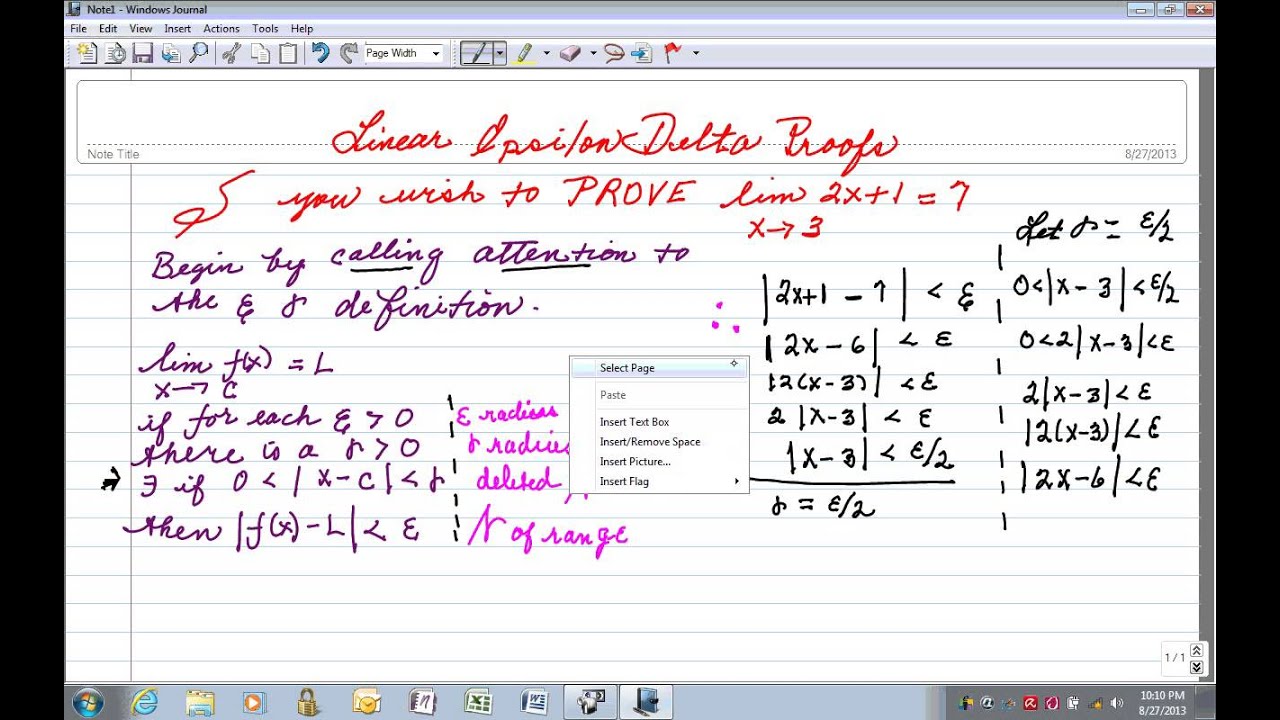 Note1 - Windows Journal
File Edit View Insert Actions Tools Help
Page Width
Linear Epsilon Delta Proofs
Note Title
8/27/2013
you wish to PROVE lim 2x+1 = 7
x→3
Begin by calling attention to
the ε δ definition.
lim f(x) = L
x→c
if for each ε > 0
there is a δ > 0
∋ if 0 < |x-c| < δ
then |f(x)-L| < ε
ε radius
δ radius
deleted
N of range
∴
|2x+1 - 7| < ε
|2x-6| < ε
|2(x-3)| < ε
2|x-3| < ε
|x-3| < ε/2
δ = ε/2
Let δ = ε/2
0<|x-3|<ε/2
0<2|x-3|<ε
2|x-3|<ε
|2(x-3)|<ε
|2x-6|<ε
Select Page
Paste
Insert Text Box
Insert/Remove Space
Insert Picture...
Insert Flag
1 / 1
10:10 PM
8/27/2013